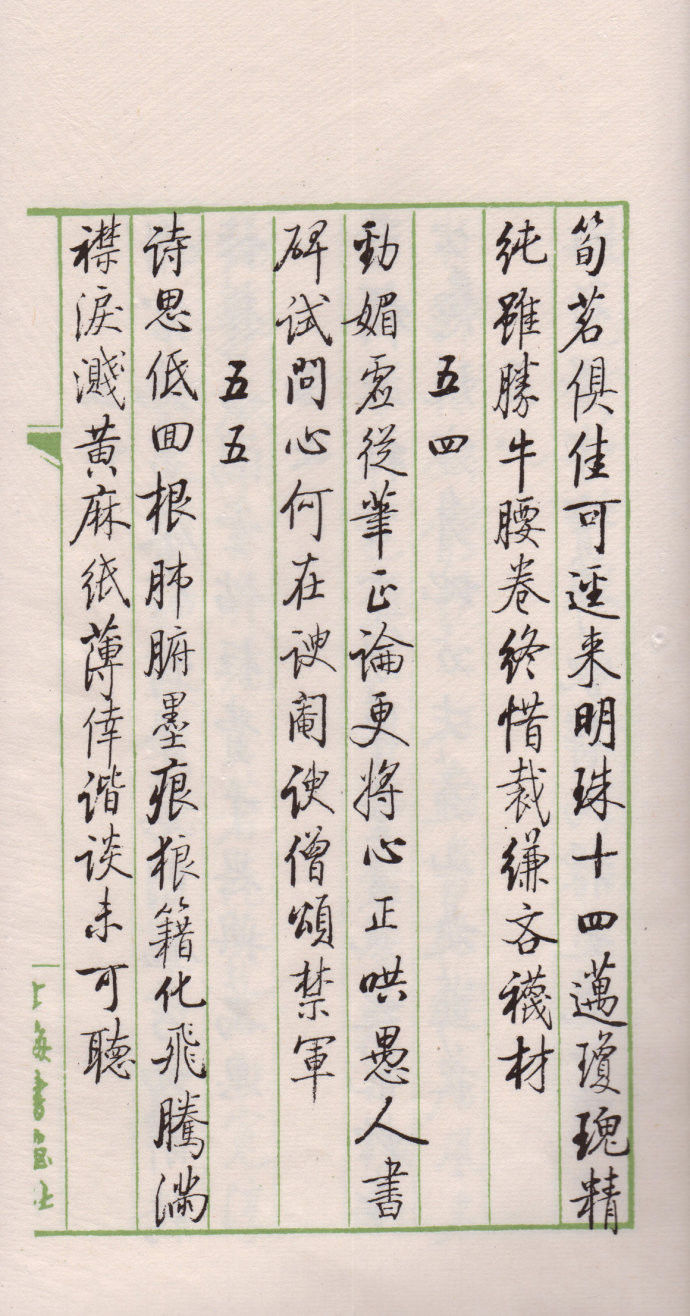 筍茗俱佳可逕来明珠十四邁瓊瑰精
純雖勝牛腰卷終惜裁縑吝襪材
五四
勁媚虛從筆正論更將心正哄愚人書
碑試問心何在諛閹諛僧頌禁軍
五五
诗思低回根肺腑墨痕狼籍化飛騰満
襟淚濺黄麻紙薄倖谐谈未可聽
上海書画社